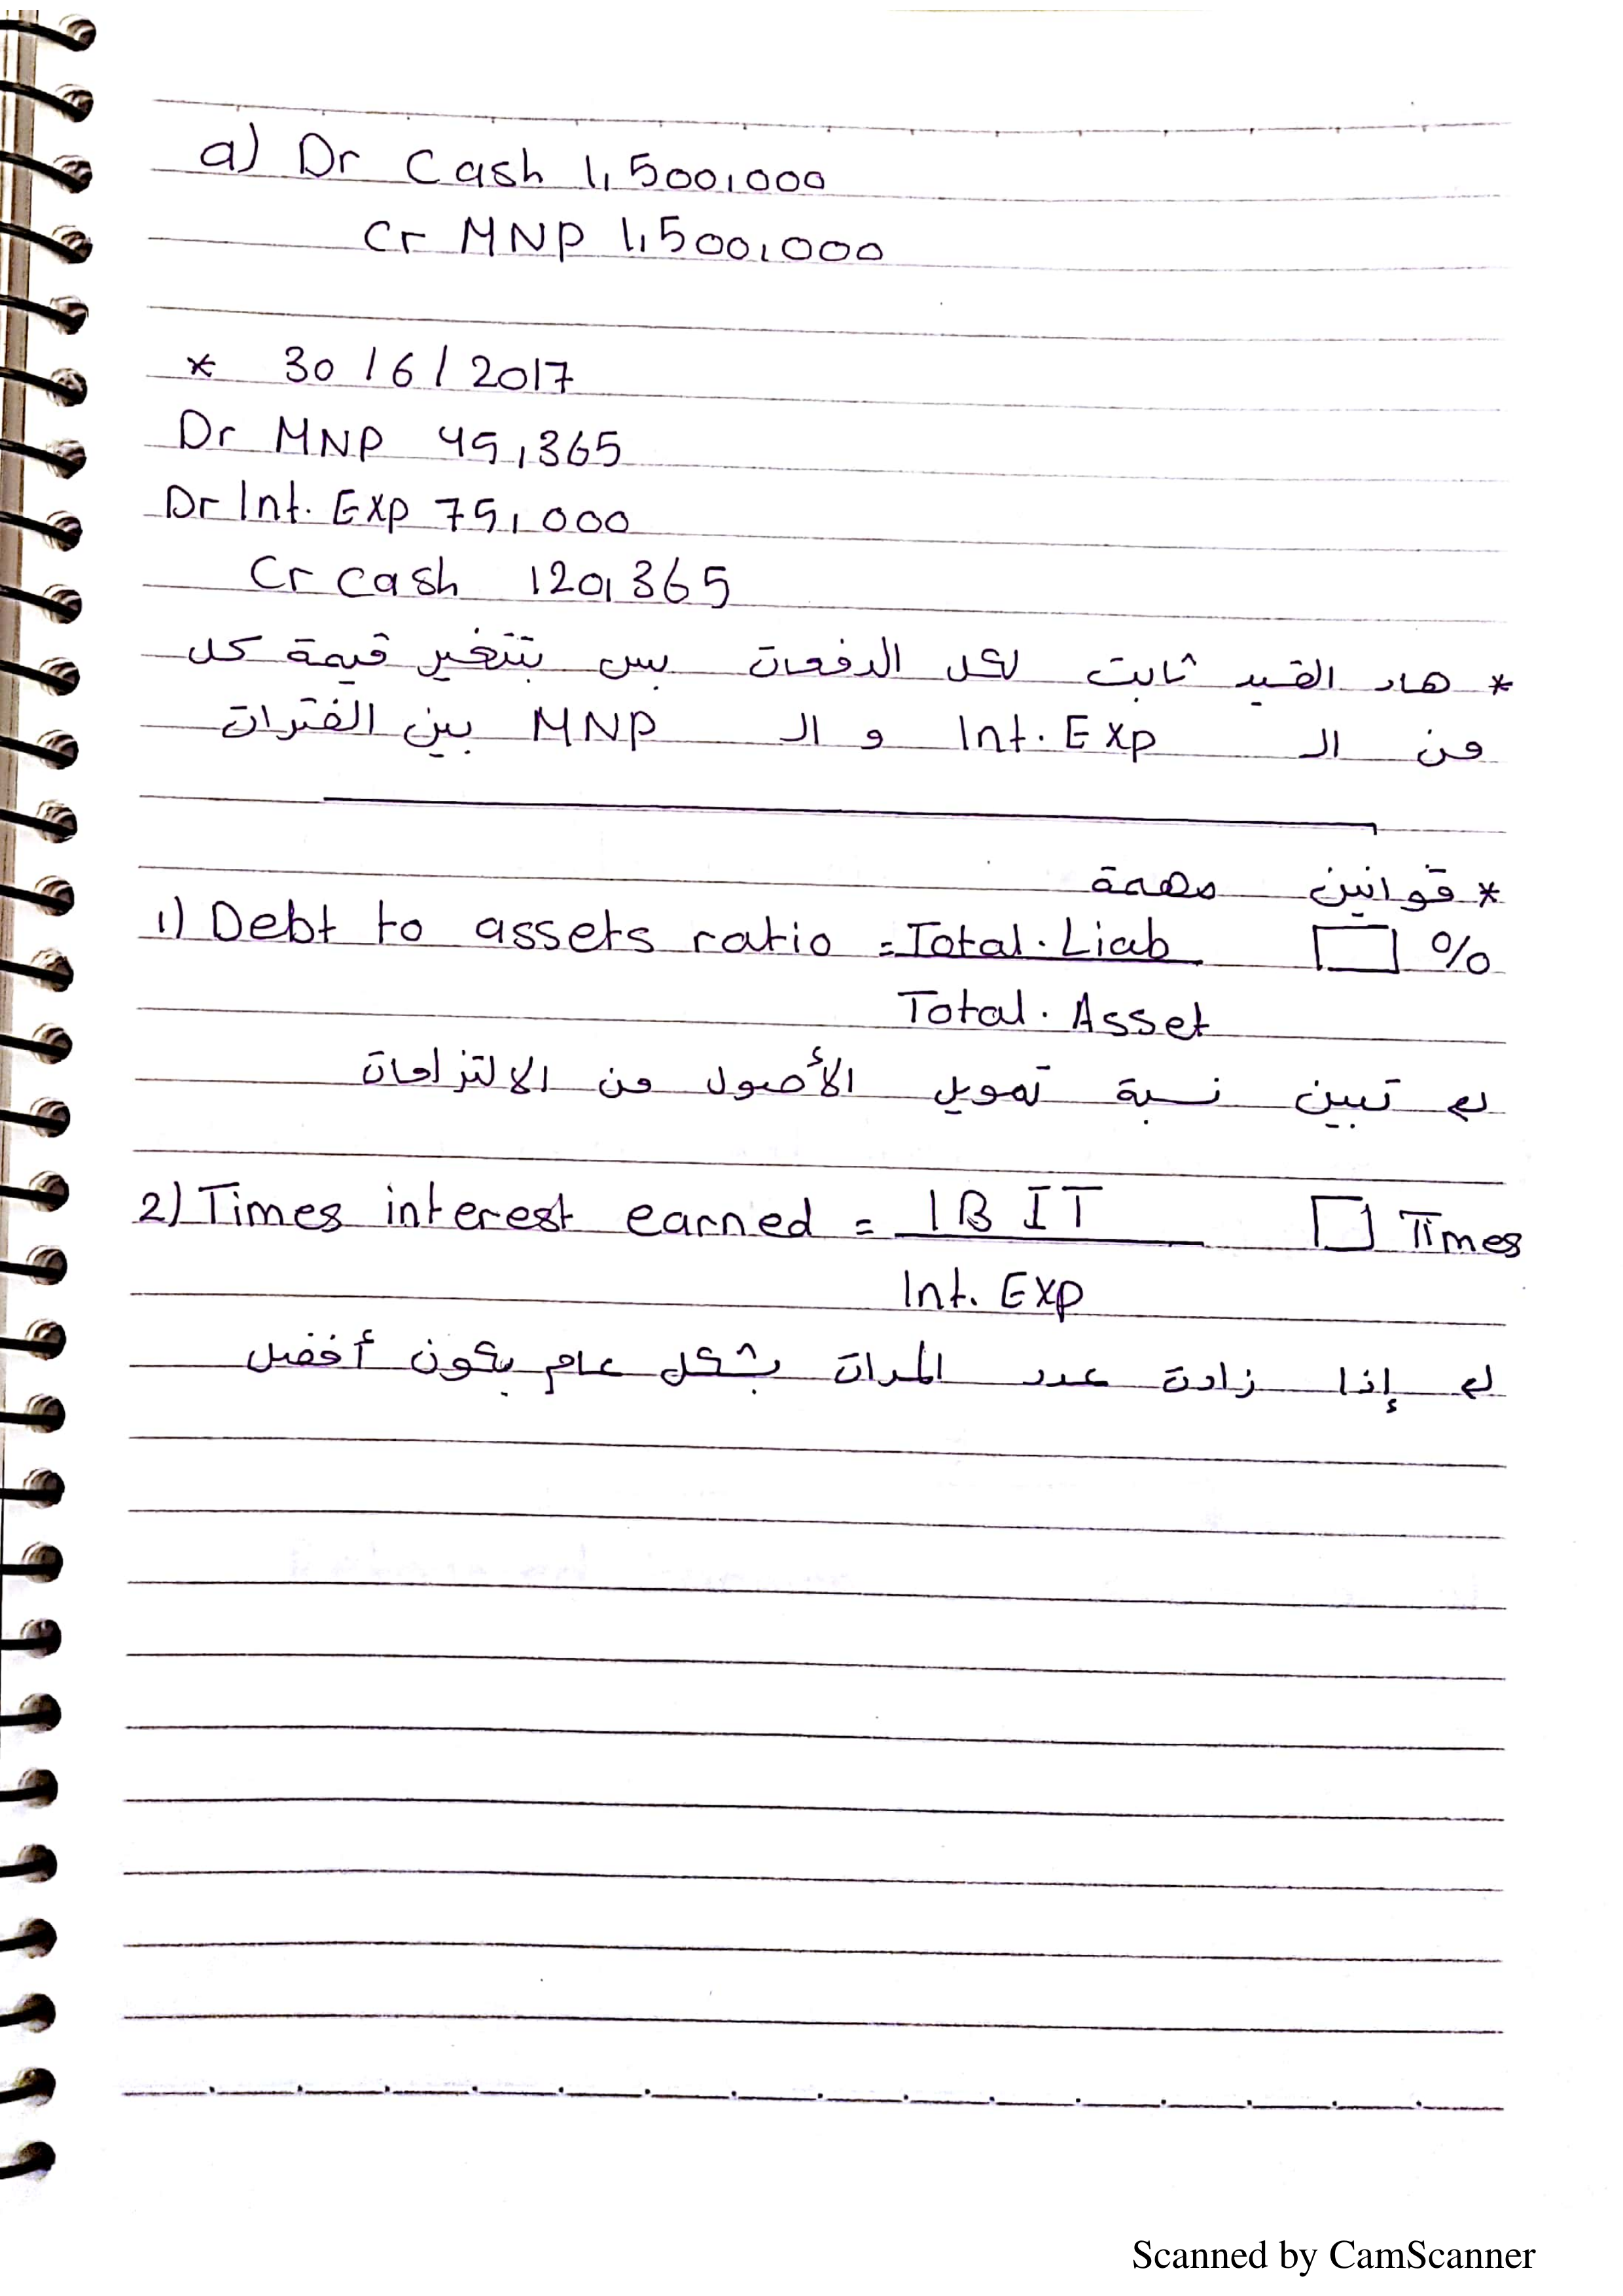 a) Dr Cash 1,500,000
Cr MNP 1,500,000
* 30/6/2017
Dr MNP 45,365
Dr Int. Exp 75,000
Cr cash 120,365
* هاد القيد ثابت لكل الدفعات بس بتتغير قيمة كل
من الـ Int. Exp و الـ MNP بين الفترات
* قوانين مهمة
1) Debt to assets ratio = Total. Liab %
Total. Asset
تبين نسبة تمويل الأصول من الالتزامات
2) Times interest earned = IBIT Times
Int. Exp
إذا زادت عدد المرات بشكل عام بكون أفضل
Scanned by CamScanner